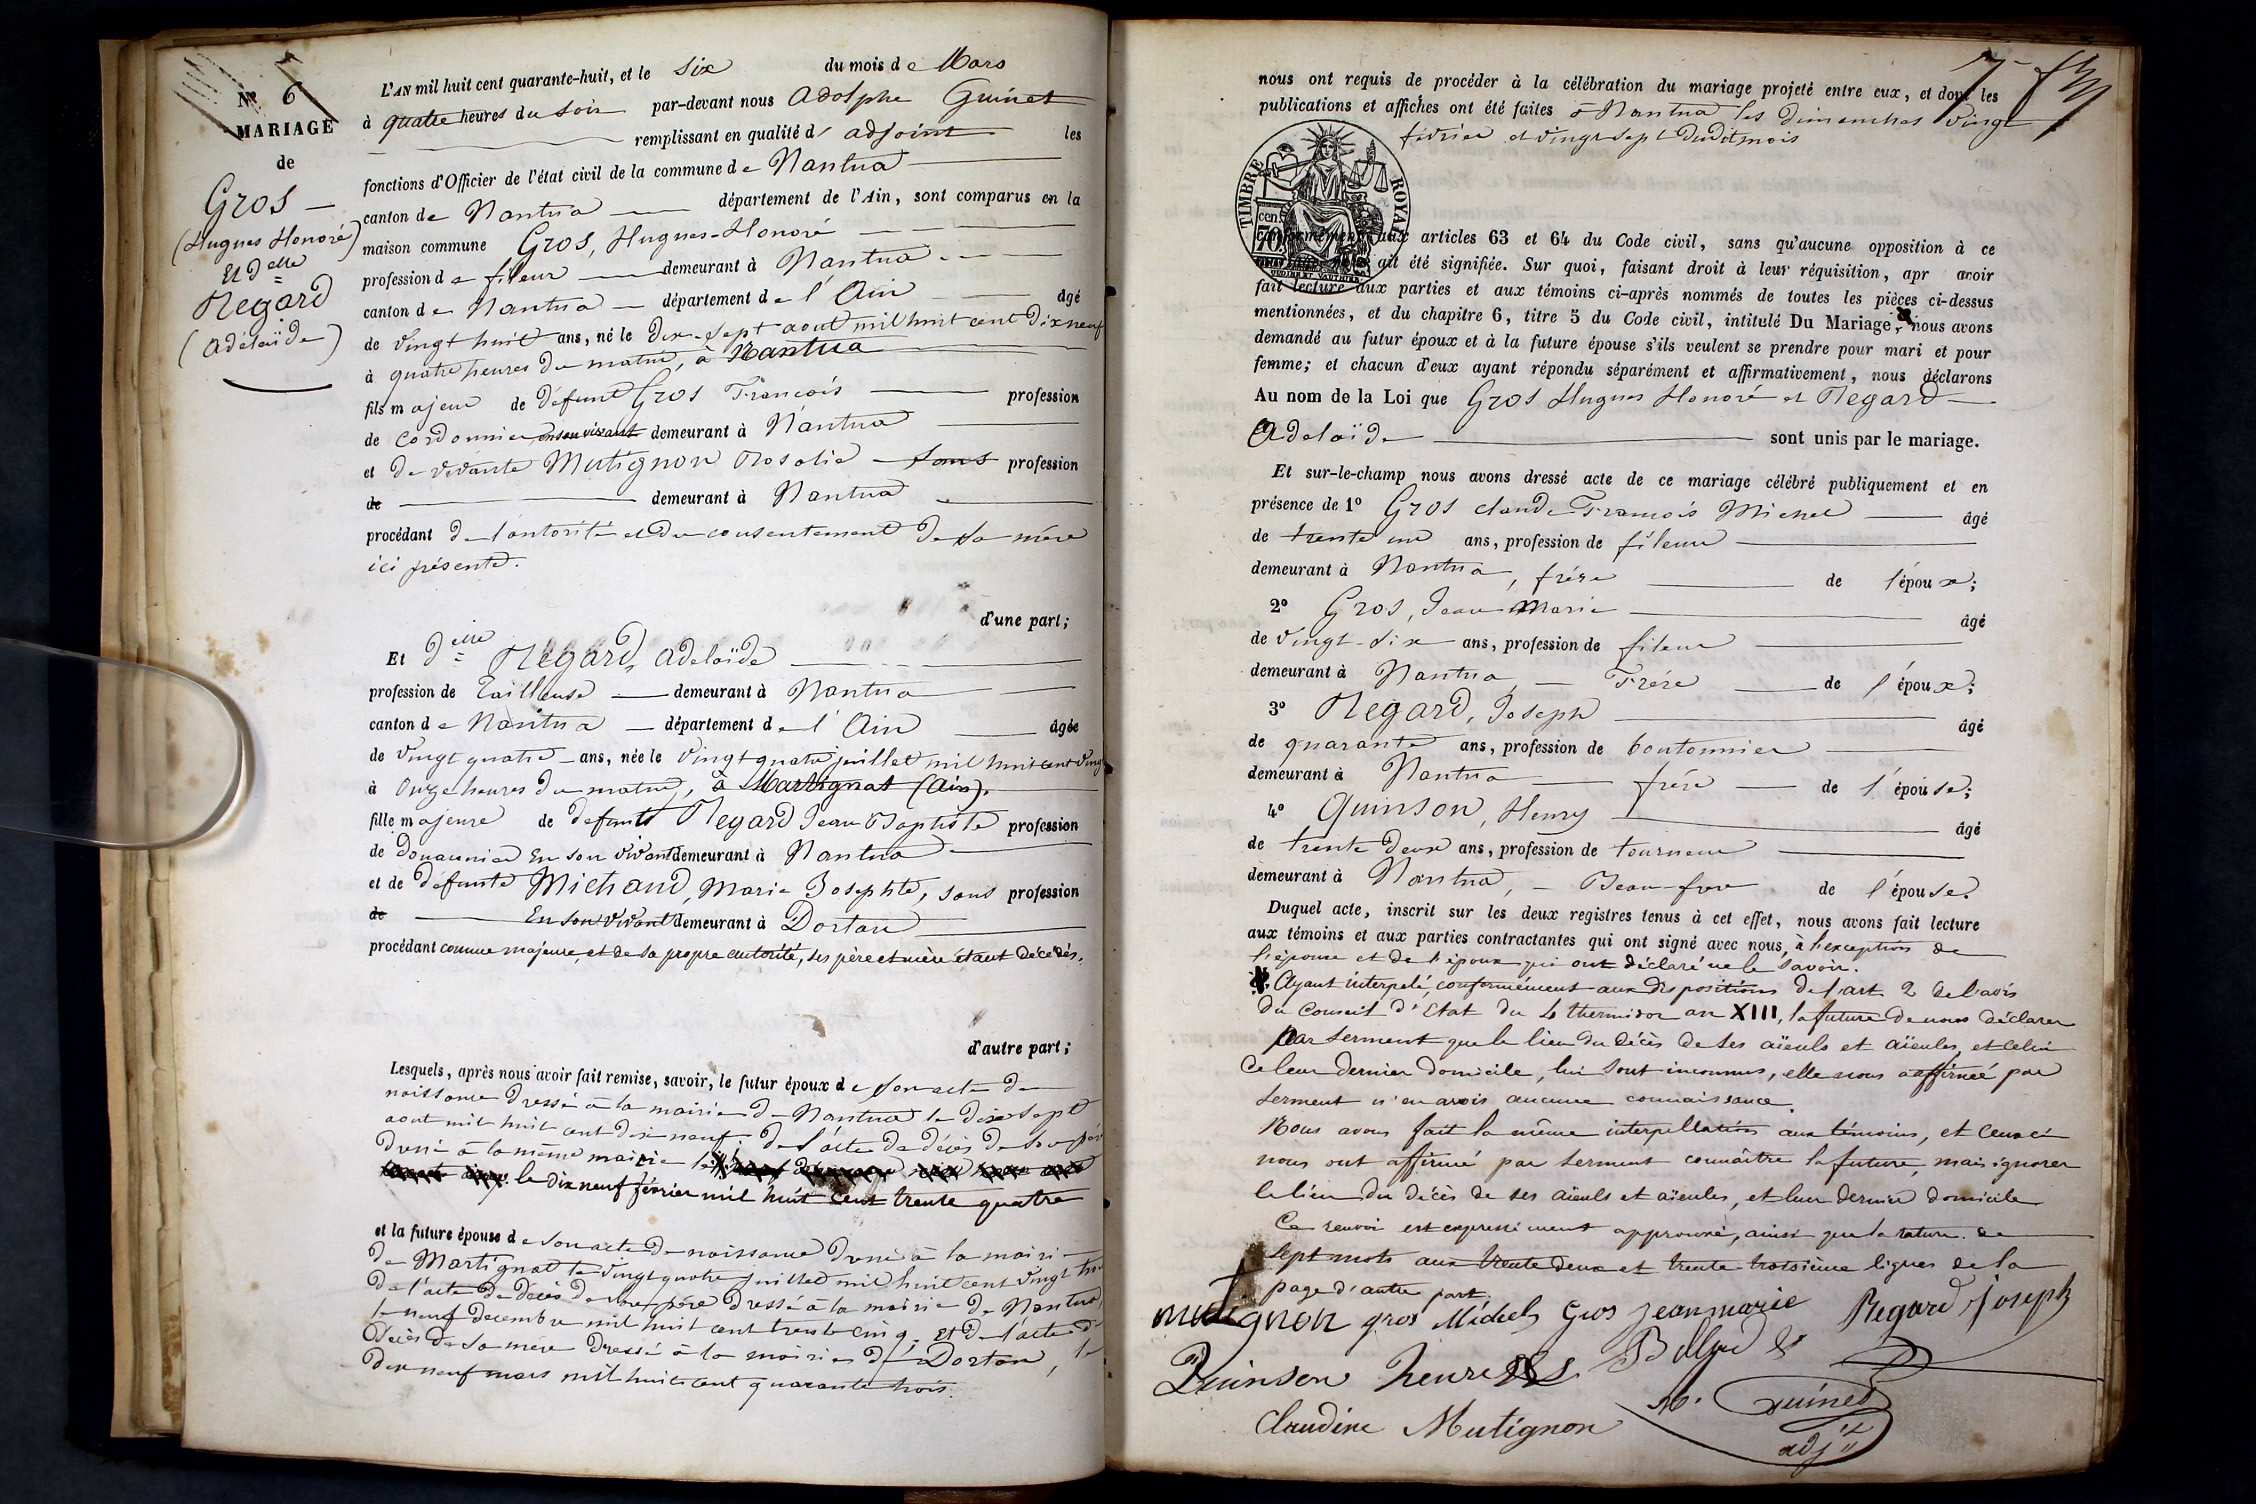 Nº 6
MARIAGE
de
Gros
(Hugues Honoré)
Et Delle
Regard
(Adélaïde)
L'AN mil huit cent quarante-huit, et le six du mois de Mars
à quatre heures du soir par-devant nous Adolphe Guinet
remplissant en qualité d'adjoint les
fonctions d'Officier de l'état civil de la commune de Nantua
canton de Nantua département de l'Ain, sont comparus en la
maison commune Gros, Hugues-Honoré
profession de fileur demeurant à Nantua
canton de Nantua département de l'Ain âgé
de vingt huit ans, né le dix-sept aout mil huit cent dix neuf
à quatre heures du matin, à Nantua
fils majeur de défunt Gros François profession
de cordonnier en son vivant demeurant à Nantua
et de vivante Mutignon Rosalie sans profession
de demeurant à Nantua
procédant de l'autorité et du consentement de sa mère
ici présente.
d'une part;
Et Delle Regard, Adelaïde
profession de Tailleuse demeurant à Nantua
canton de Nantua département de l'Ain âgée
de vingt quatre ans, née le vingt quatre juillet mil huit cent vingt
à onze heures du matin, à Martignat (Ain).
fille majeure de defunts Regard Jean Baptiste profession
de douannier En son vivant demeurant à Nantua
et de défunte Michaud, Marie Josephte, sans profession
de En son vivant demeurant à Dortan
procédant comme majeure, et de sa propre autorité, ses père et mère étant décédés.
d'autre part;
Lesquels, après nous avoir fait remise, savoir, le futur époux de son acte de
naissance dressé à la mairie de Nantua le dix sept
aout mil huit cent dix neuf; de l'acte de décès de son père
dressé à la même mairie
le dix neuf février mil huit cent trente quatre
et la future épouse de son acte de naissance dressé à la mairie
de Martignat le vingt quatre juillet mil huit cent vingt trois
de l'acte de décès de son père dressé à la mairie de Nantua,
le neuf decembre mil huit cent trente cinq. Et de l'acte de
décès de sa mère dressé à la mairie de Dortan, le
dix neuf mars mil huit cent quarante trois.
7
nous ont requis de procéder à la célébration du mariage projeté entre eux, et dont les
publications et affiches ont été faites à Nantua les dimanches vingt
février et vingt sept dudit mois
TIMBRE ROYAL
70 cen.
conformément aux articles 63 et 64 du Code civil, sans qu'aucune opposition à ce
ait été signifiée. Sur quoi, faisant droit à leur réquisition, apr avoir
fait lecture aux parties et aux témoins ci-après nommés de toutes les pièces ci-dessus
mentionnées, et du chapitre 6, titre 5 du Code civil, intitulé Du Mariage, nous avons
demandé au futur époux et à la future épouse s'ils veulent se prendre pour mari et pour
femme; et chacun d'eux ayant répondu séparément et affirmativement, nous déclarons
Au nom de la Loi que Gros Hugues Honoré et Regard
Adelaïde sont unis par le mariage.
Et sur-le-champ nous avons dressé acte de ce mariage célébré publiquement et en
présence de 1º Gros claude François Michel âgé
de trente un ans, profession de fileur
demeurant à Nantua, frère de l'époux;
2º Gros, Jean Marie âgé
de vingt-six ans, profession de fileur
demeurant à Nantua, Frère de l'époux;
3º Regard, Joseph âgé
de quarante ans, profession de boutonnier
demeurant à Nantua frère de l'épouse;
4º Quinson, Henry âgé
de trente deux ans, profession de tourneur
demeurant à Nantua, Beau-frère de l'épouse.
Duquel acte, inscrit sur les deux registres tenus à cet effet, nous avons fait lecture
aux témoins et aux parties contractantes qui ont signé avec nous, à l'exception de
l'épouse et de l'époux qui ont déclaré ne le savoir.
Ayant interpelé, conformément aux dispositions de l'art 2 de l'avis
du Conseil d'Etat du 4 thermidor an XIII, la future de nous déclarer
par serment que le lieu du décès de ses aïeuls et aïeules, et celui
de leur dernier domicile, lui sont inconnus, elle nous a affirmé par
serment n'en avoir aucune connaissance.
Nous avons fait la même interpellation aux témoins, et ceux ci
nous ont affirmé par serment connaître la future, mais ignorer
le lieu du décès de ses aïeuls et aïeules, et leur dernier domicile
Ce renvoi est expressement approuvé, ainsi que la rature de
sept mots aux trente deux et trente troisième lignes de la
page d'autre part.
mutignon gros Michel Gros jean marie Regard joseph
Quinson henri
Claudine Mutignon
A. Guinet
adjt